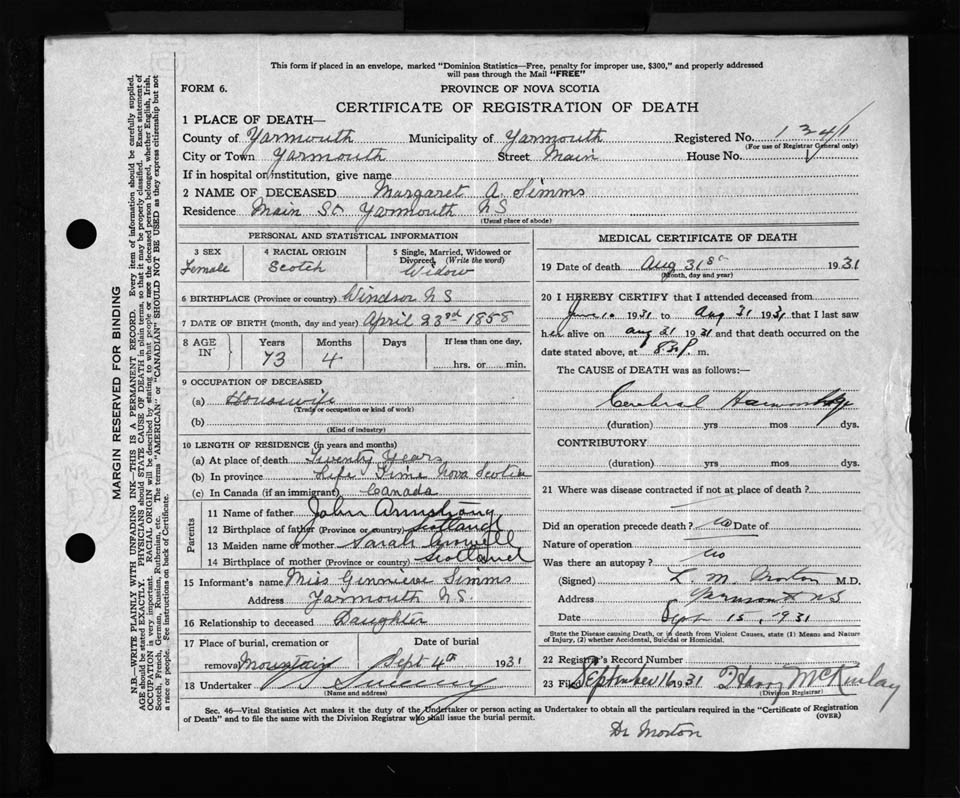 This form if placed in an envelope, marked "Dominion Statistics—Free, penalty for improper use, $300," and properly addressed
will pass through the Mail "FREE"
FORM 6.
PROVINCE OF NOVA SCOTIA
CERTIFICATE OF REGISTRATION OF DEATH
1 PLACE OF DEATH—
County of Yarmouth Municipality of Yarmouth Registered No. 1341
(For use of Registrar General only)
City or Town Yarmouth Street Main House No.
If in hospital or institution, give name
2 NAME OF DECEASED Margaret A. Simms
Residence Main St Yarmouth NS
(Usual place of abode)
PERSONAL AND STATISTICAL INFORMATION
3 SEX Female
4 RACIAL ORIGIN Scotch
5 Single, Married, Widowed or Divorced, (Write the word) Widow
6 BIRTHPLACE (Province or country) Windsor NS
7 DATE OF BIRTH (month, day and year) April 23rd 1858
8 AGE IN Years 73 Months 4 Days If less than one day, hrs. or min.
9 OCCUPATION OF DECEASED
(a) Housewife
(Trade or occupation or kind of work)
(b)
(Kind of industry)
10 LENGTH OF RESIDENCE (in years and months)
(a) At place of death Twenty Years
(b) In province Life Time Nova Scotia
(c) In Canada (if an immigrant) Canada
Parents
11 Name of father John Armstrong
12 Birthplace of father (Province or country) Scotland
13 Maiden name of mother Sarah
14 Birthplace of mother (Province or country) Scotland
15 Informant's name Miss Genevieve Simms
Address Yarmouth NS.
16 Relationship to deceased Daughter
17 Place of burial, cremation or removal Mountain
Date of burial Sept 4th 1931
18 Undertaker Sweeny
(Name and address)
MEDICAL CERTIFICATE OF DEATH
19 Date of death Aug 31st 1931
(Month, day and year)
20 I HEREBY CERTIFY that I attended deceased from
June 10 1931 to Aug 31 1931 that I last saw
her alive on Aug 31 1931 and that death occurred on the
date stated above, at m.
The CAUSE of DEATH was as follows:—
Cerebral Haemorrhage
(duration) yrs mos dys.
CONTRIBUTORY
(duration) yrs mos dys.
21 Where was disease contracted if not at place of death?
Did an operation precede death? No Date of
Nature of operation
Was there an autopsy? No
(Signed) L. M. Morton M.D.
Address Yarmouth NS
Date Sept 15, 1931
State the Disease causing Death, or in death from Violent Causes, state (1) Means and Nature
of Injury, (2) whether Accidental, Suicidal or Homicidal.
22 Registrar's Record Number
23 Filed September 16 1931 Harry McKinlay
(Division Registrar)
Sec. 46—Vital Statistics Act makes it the duty of the Undertaker or person acting as Undertaker to obtain all the particulars required in the "Certificate of Registration
of Death" and to file the same with the Division Registrar who shall issue the burial permit.
(OVER)
Dr Morton
MARGIN RESERVED FOR BINDING
N.B.—WRITE PLAINLY WITH UNFADING INK—THIS IS A PERMANENT RECORD. Every item of information should be carefully supplied.
AGE should be stated EXACTLY. PHYSICIANS should STATE CAUSE OF DEATH in plain terms, so that it may be properly classified. Exact statement of
OCCUPATION is very important. RACIAL ORIGIN will be described by stating to what people or race the deceased person belonged, whether English, Irish,
Scotch, French, German, Russian, Ruthenian, etc. The terms "AMERICAN" or "CANADIAN" SHOULD NOT BE USED as they express citizenship but not
a race or people. See instructions on back of Certificate.